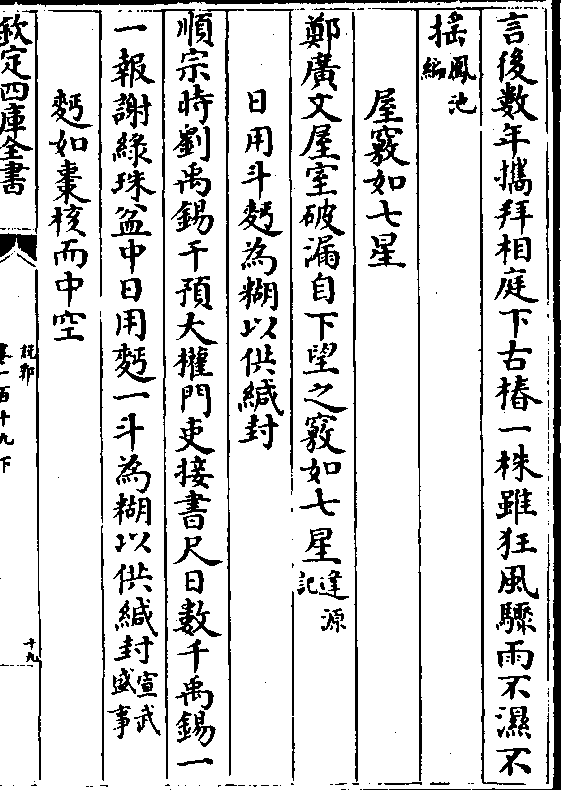 言後數年攜拜相庭下古椿一株雖狂風驟雨不濕不
搖鳳池編
屋竅如七星
鄭廣文屋室破漏自下望之竅如七星逢源記
日用斗麪為糊以供緘封
順宗時劉禹錫干預大權門吏接書尺日數千禹錫一
一報謝綠珠盆中日用麪一斗為糊以供緘封宣武盛事
麪如棗核而中空
欽定四庫全書
說郛
卷一百十九下
十九